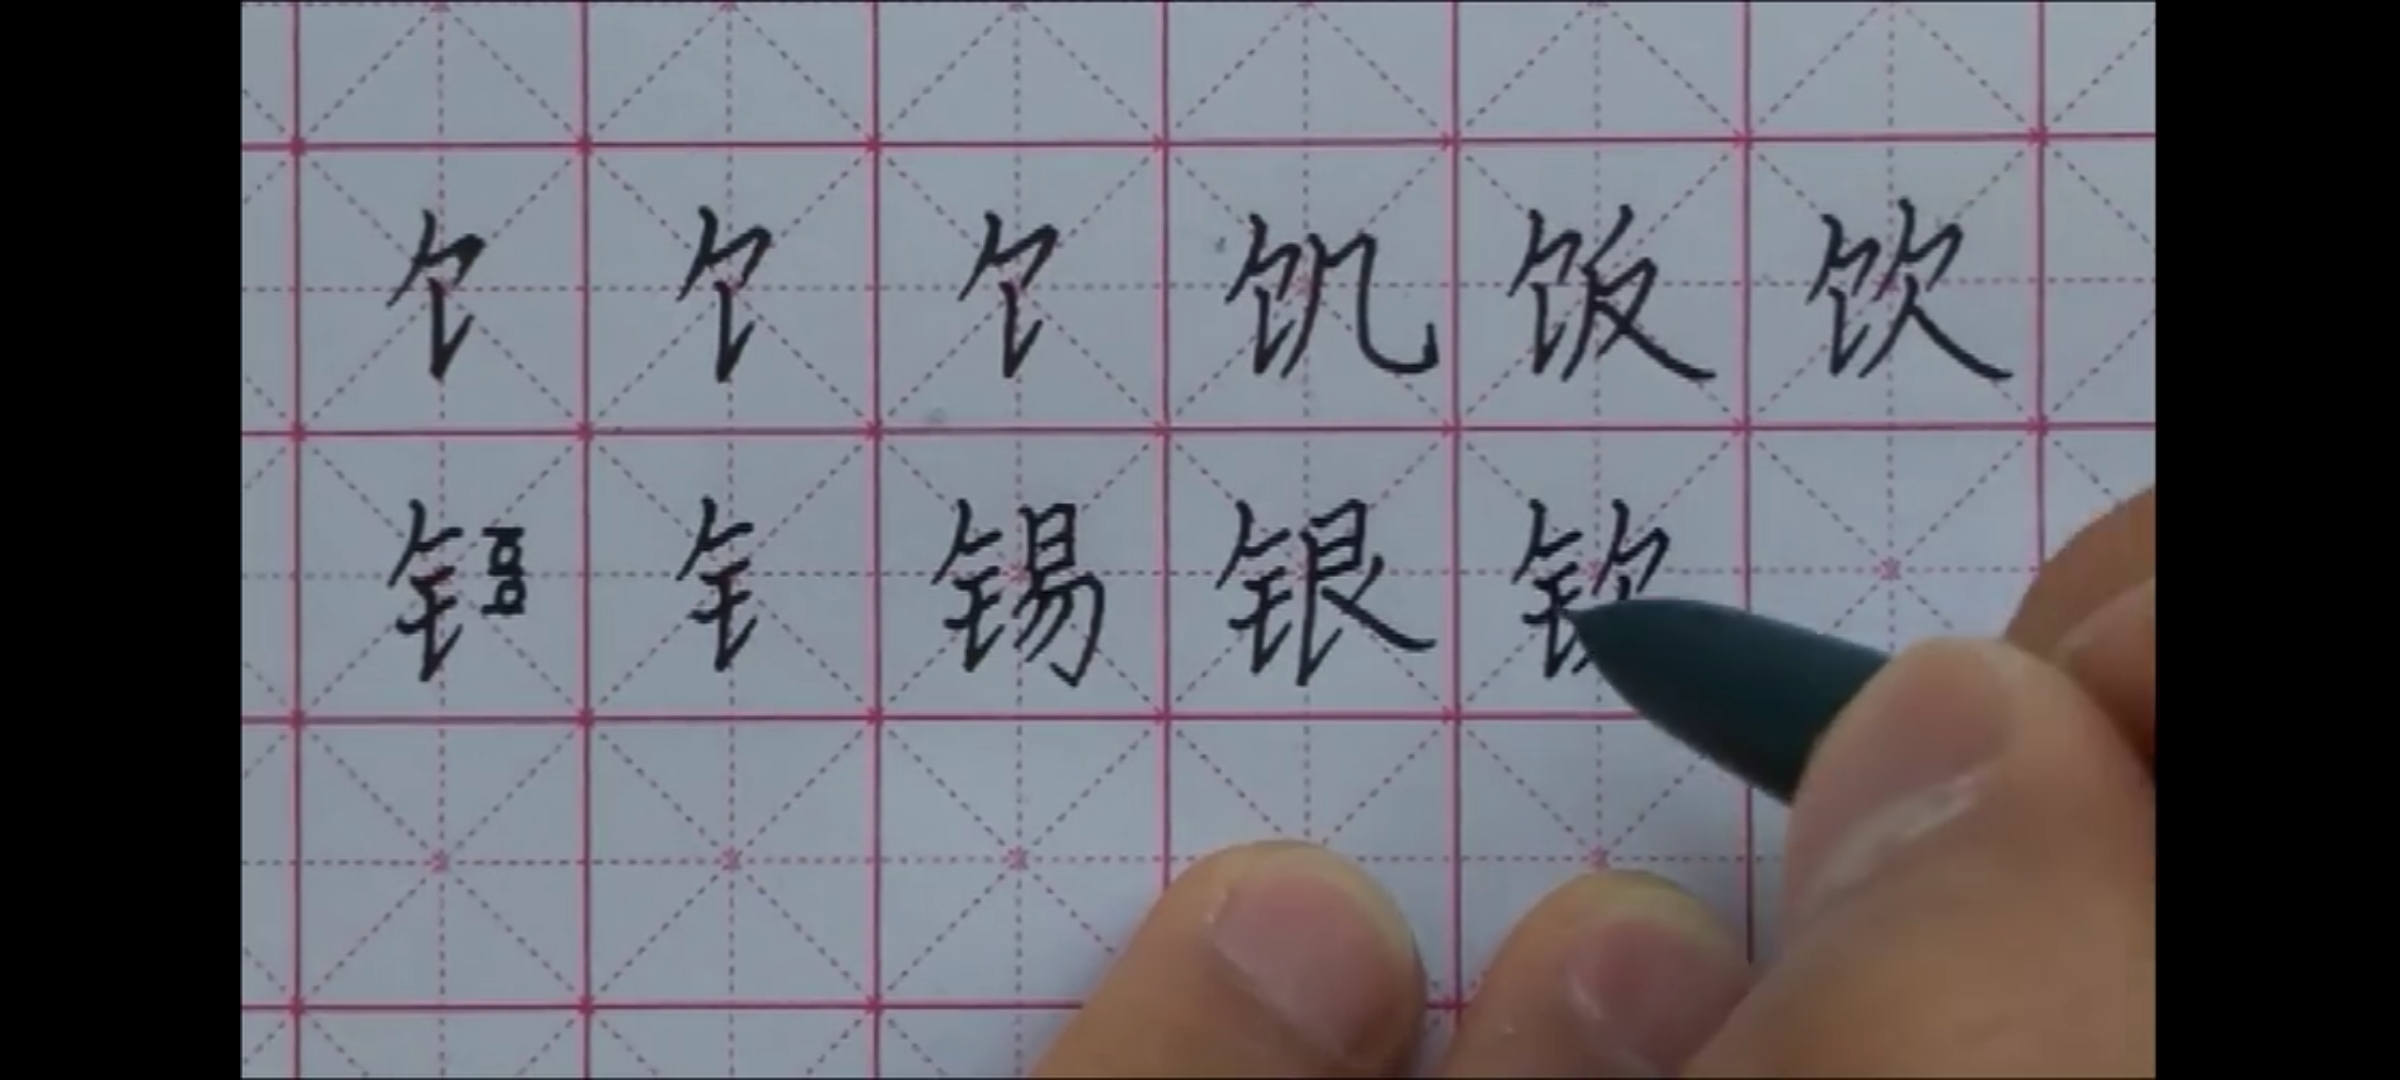 饣 饣 饣 饥 饭 饮
钅 钅 锡 银 钦